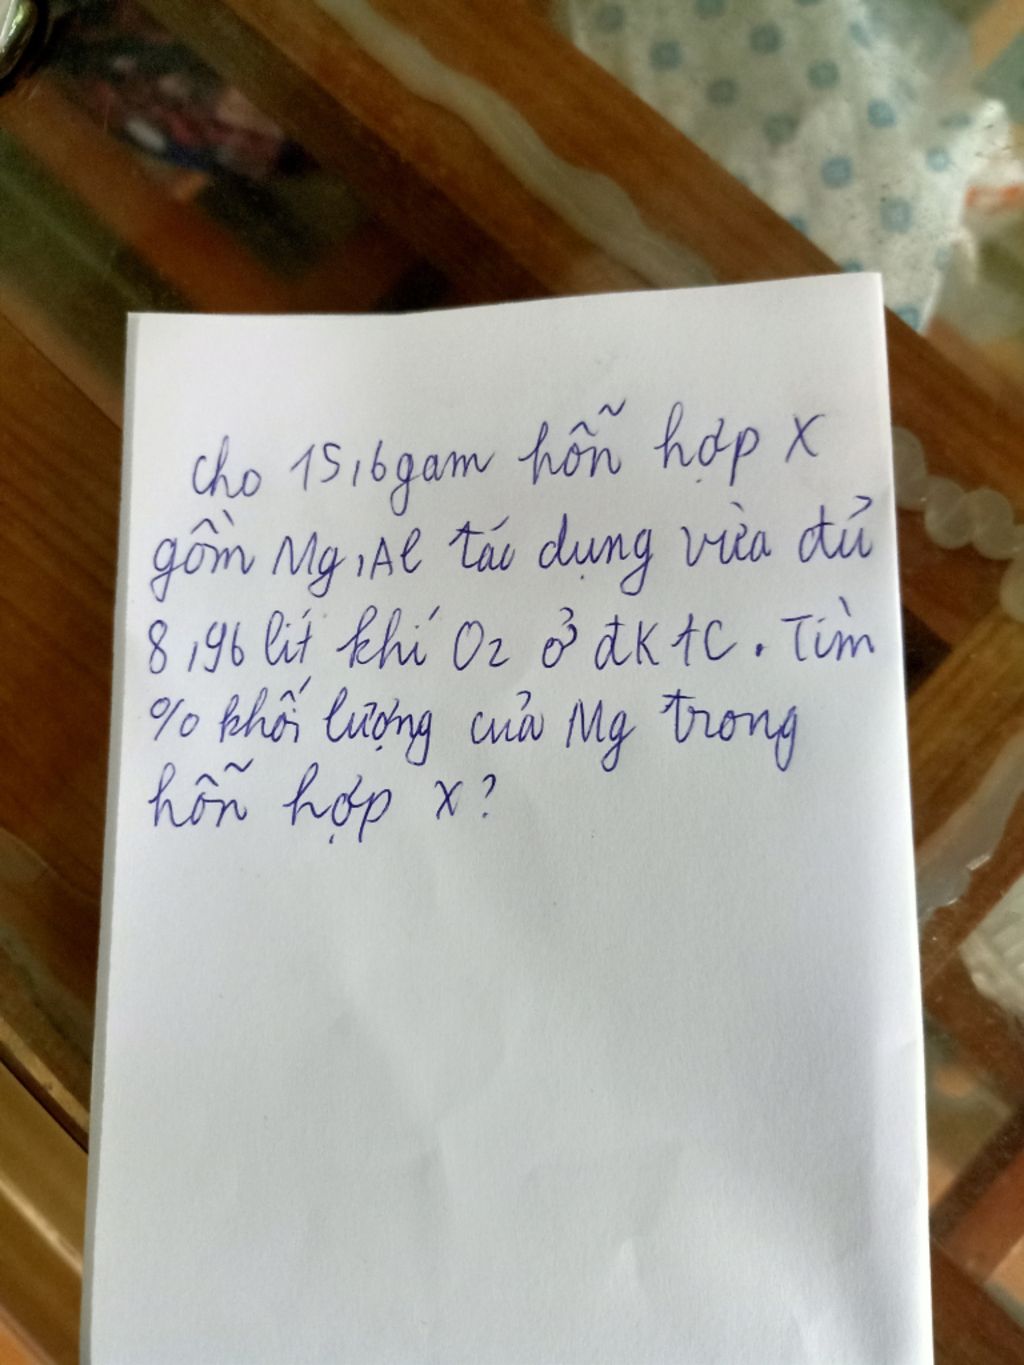 Cho 15,6gam hỗn hợp X
gồm Mg,Al tác dụng vừa đủ
8,96 lít khí O2 ở đKtC. Tìm
% khối lượng của Mg trong
hỗn hợp X?